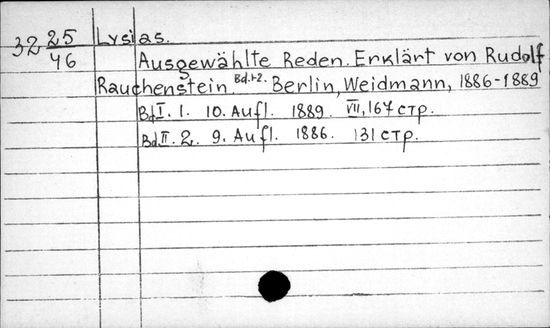 32 25/46 Lysias.
Ausgewählte Reden. Erklärt von Rudolf
Rauchenstein Bd.1-2. Berlin, Weidmann, 1886-1889
Bd I. 1. 10. Aufl. 1889. VII, 167 стр.
Bd. II. 2. 9. Aufl. 1886. 131 стр.